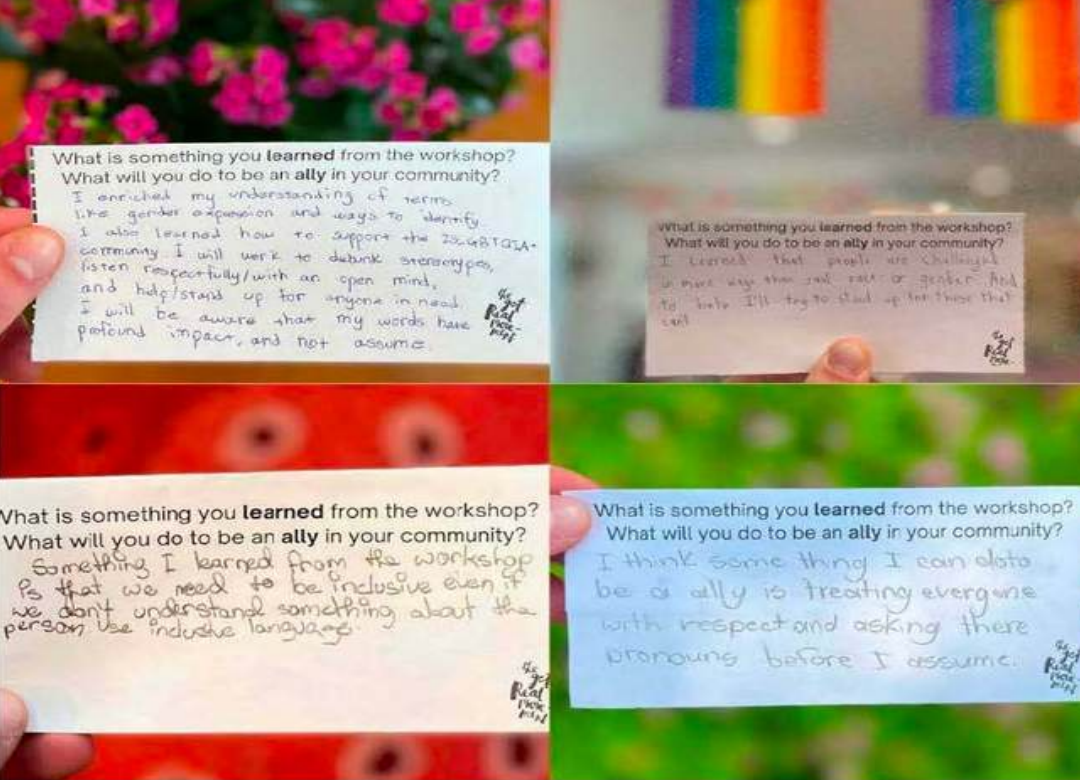 What is something you learned from the workshop?
What will you do to be an ally in your community?
I enriched my understanding of terms
like gender expression and ways to identify
I also learned how to support the 2SLGBTQIA+
community I will work to debunk stereotypes,
listen respectfully/with an open mind,
and help/stand up for anyone in need
I will be aware that my words have
profound impact, and not assume.
the
get
Real
move-
ment
What is something you learned from the workshop?
What will you do to be an ally in your community?
I learned that people are challenged
in more ways than just race or gender. And
to help I'll try to stand up for those that
can't
the
get
Real
move-
What is something you learned from the workshop?
What will you do to be an ally in your community?
Something I learned from the workshop
is that we need to be inclusive even if
we don't understand something about the
person use inclusive language.
the
get
Real
move-
ment
What is something you learned from the workshop?
What will you do to be an ally in your community?
I think some thing I can do to
be a ally is treating everyone
with respect and asking there
pronouns before I assume.
the
get
Real
move-
ment